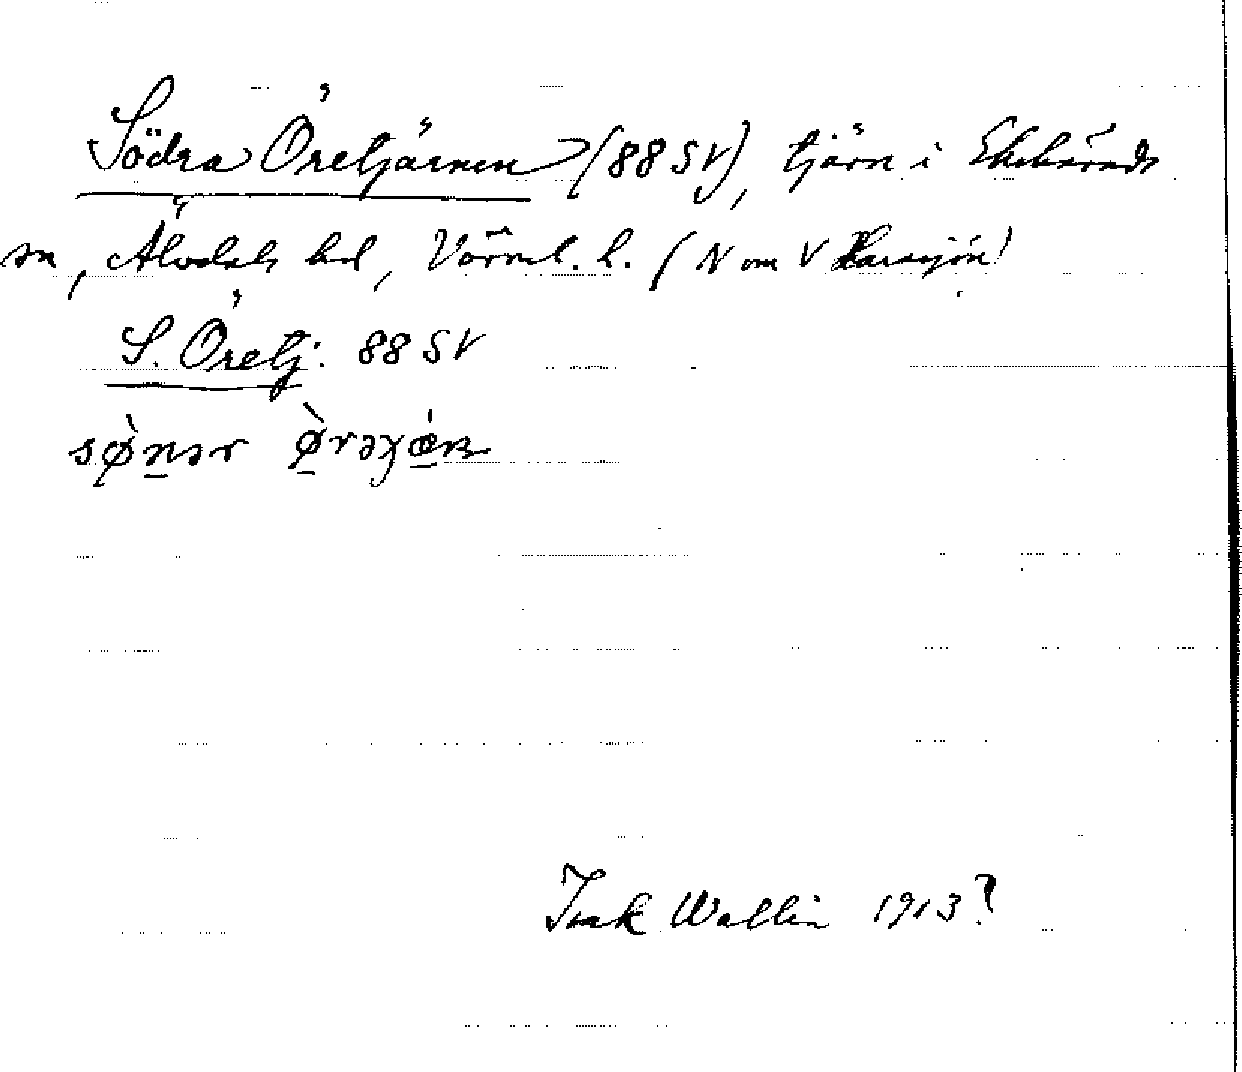 Södra Öretjärnen (88 SV), tjärn i Ekshärads
sn, Älvdals hd, Värml. l. (N om V Harsjön)
S. Öretj: 88 SV
sø̀nər ø̀rəχæ̀n
Isak Wallin 1913?